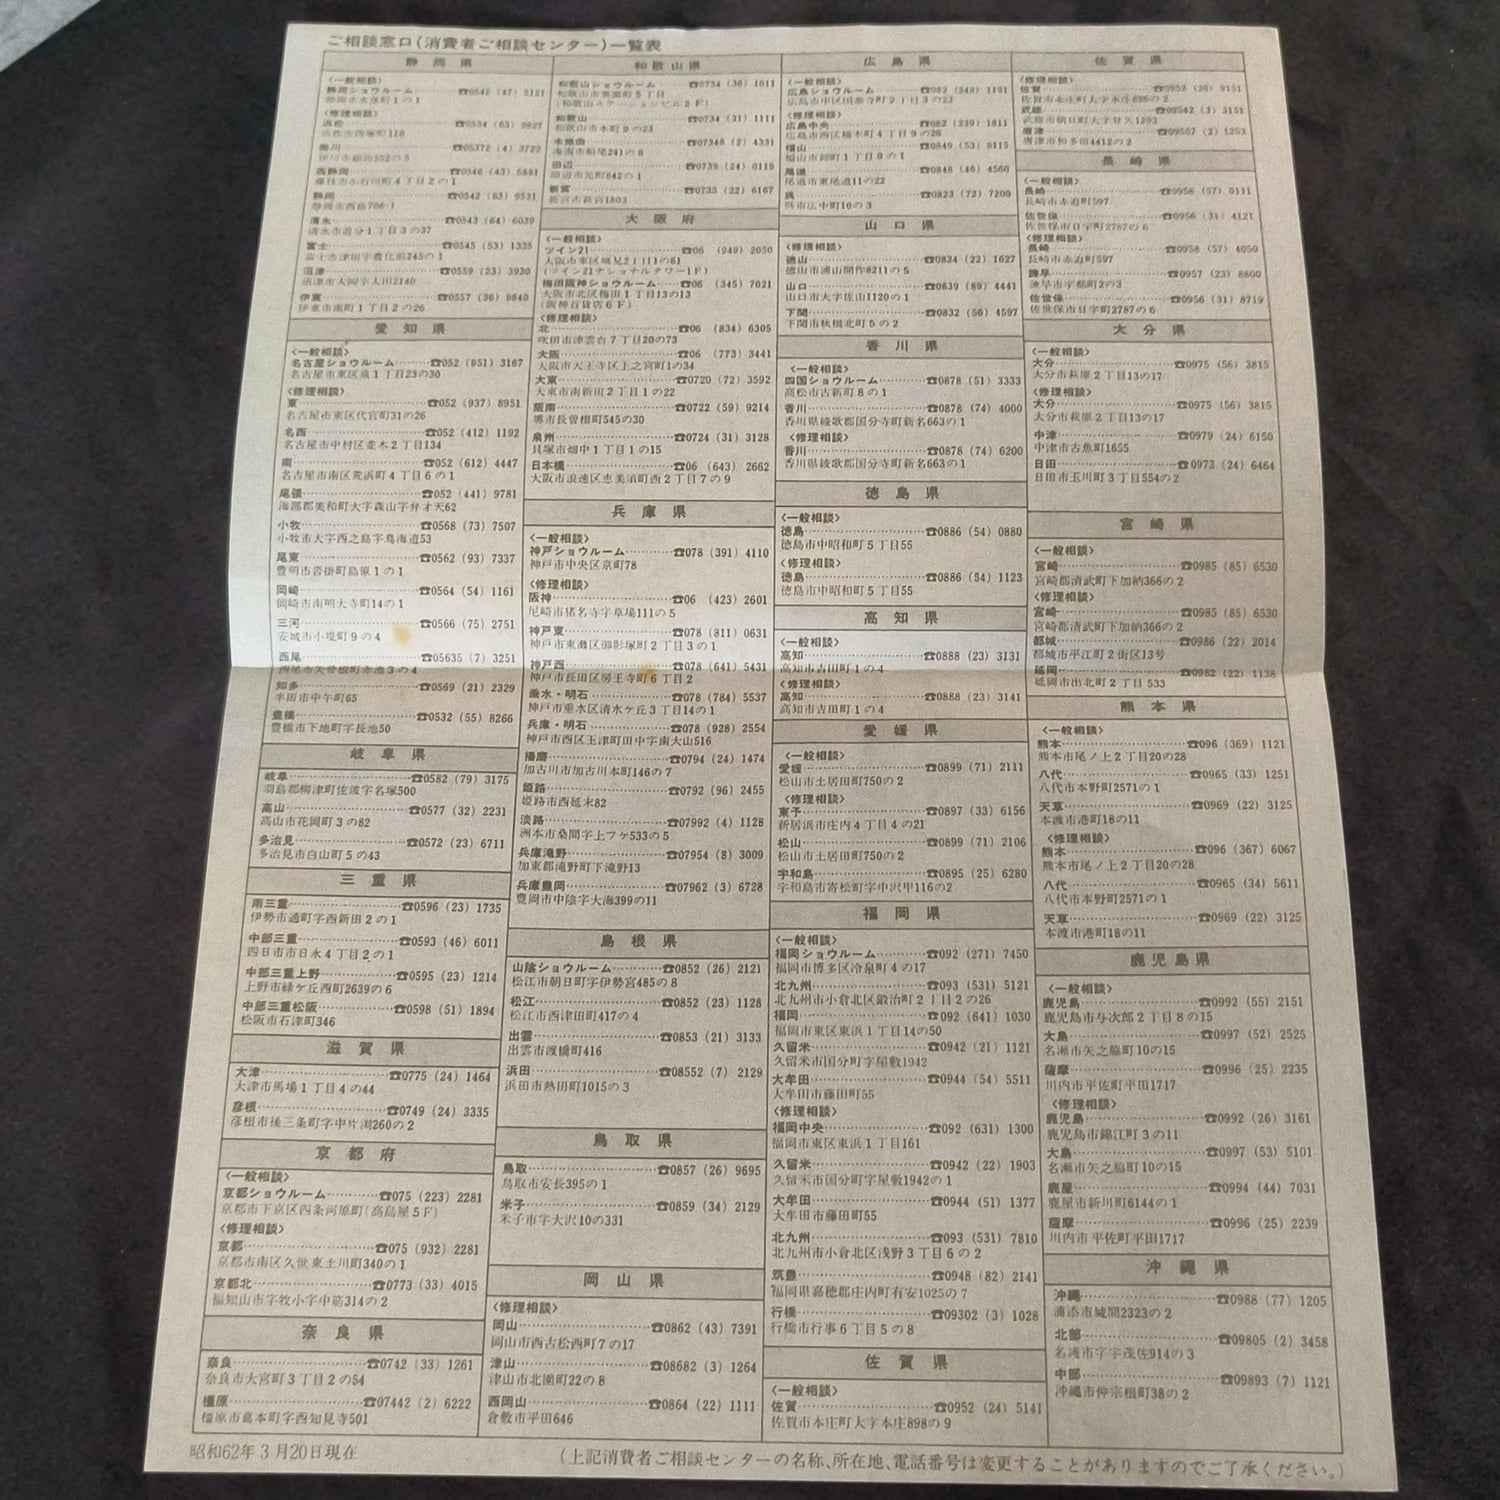 ご相談窓口(消費者ご相談センター)一覧表
静岡県
〈一般相談〉
静岡ショウルーム……☎0542 (47) 5121
〈修理相談〉
浜松……☎0534 (63) 9827
掛川……☎05372 (4) 3722
西静岡……☎0546 (43) 5881
藤枝市小石川町4丁目2の1
静岡……☎0542 (83) 9531
静岡市西島706-1
清水……☎0543 (64) 6039
清水市追分1丁目3の37
富士……☎0545 (53) 1335
沼津……☎0559 (23) 3930
伊東……☎0557 (36) 9840
伊東市南町1丁目2の26
愛知県
〈一般相談〉
名古屋ショウルーム……☎052 (951) 3167
名古屋市東区泉1丁目23の30
〈修理相談〉
東……☎052 (937) 8951
名古屋市東区代官町31の26
名西……☎052 (412) 1192
名古屋市中村区並木2丁目134
南……☎052 (612) 4447
名古屋市南区荒浜町4丁目6の1
尾張……☎052 (441) 9781
海部郡美和町大字森山字弁才天62
小牧……☎0568 (73) 7507
小牧市大字西之島字鳥海道53
尾東……☎0562 (93) 7337
豊明市沓掛町島原1の1
岡崎……☎0564 (54) 1161
岡崎市南明大寺町14の1
三河……☎0566 (75) 2751
安城市小堤町9の4
西尾……☎05635 (7) 3251
西尾市矢曽根町赤池3の4
知多……☎0569 (21) 2329
半田市中午町65
豊橋……☎0532 (55) 8266
豊橋市下地町字長池50
岐阜県
岐阜……☎0582 (79) 3175
羽島郡柳津町佐波字名塚500
高山……☎0577 (32) 2231
高山市花岡町3の82
多治見……☎0572 (23) 6711
多治見市白山町5の43
三重県
南三重……☎0596 (23) 1735
伊勢市通町字西新田2の1
中部三重……☎0593 (46) 6011
四日市市日永4丁目2の1
中部三重上野……☎0595 (23) 1214
上野市緑ケ丘西町2639の6
中部三重松阪……☎0598 (51) 1894
松阪市石津町346
滋賀県
大津……☎0775 (24) 1464
大津市馬場1丁目4の44
彦根……☎0749 (24) 3335
彦根市後三条町字中片渕260の2
京都府
〈一般相談〉
京都ショウルーム……☎075 (223) 2281
京都市下京区四条河原町(高島屋5F)
〈修理相談〉
京都……☎075 (932) 2281
京都市南区久世東土川町340の1
京都北……☎0773 (33) 4015
福知山市字牧小字中筋314の2
奈良県
奈良……☎0742 (33) 1261
奈良市大宮町3丁目2の54
橿原……☎07442 (2) 6222
橿原市葛本町字西知見寺501
和歌山県
和歌山ショウルーム……☎0734 (36) 1011
和歌山市美園町5丁目
(和歌山ステーションビル2F)
和歌山……☎0734 (31) 1111
和歌山市本町9の23
木地曲……☎07348 (2) 4331
海南市船尾241の8
田辺……☎0739 (24) 0119
田辺市元町642の1
新宮……☎0735 (22) 6167
新宮市新宮1803
大阪府
〈一般相談〉
ツイン21……☎06 (949) 2050
大阪市東区城見2丁目1の61
(ツイン21ナショナルタワー1F)
梅田阪神ショウルーム……☎06 (345) 7021
大阪市北区梅田1丁目13の13
(阪神百貨店6F)
〈修理相談〉
北……☎06 (834) 6305
吹田市津雲台7丁目20の73
大阪……☎06 (773) 3441
大阪市天王寺区上之宮町1の34
大東……☎0720 (72) 3592
大東市南新田2丁目1の22
阪南……☎0722 (59) 9214
堺市長曽根町545の30
泉州……☎0724 (31) 3128
貝塚市畑中1丁目1の15
日本橋……☎06 (643) 2662
大阪市浪速区恵美須町西2丁目7の9
兵庫県
〈一般相談〉
神戸ショウルーム……☎078 (391) 4110
神戸市中央区京町78
〈修理相談〉
阪神……☎06 (423) 2601
尼崎市猪名寺字草場111の5
神戸東……☎078 (811) 0631
神戸市東灘区御影塚町2丁目3の1
神戸西……☎078 (641) 5431
神戸市長田区房王寺町6丁目2
垂水・明石……☎078 (784) 5537
神戸市垂水区清水ケ丘3丁目14の1
兵庫・明石……☎078 (928) 2554
神戸市西区玉津町田中字南大山516
播磨……☎0794 (24) 1474
加古川市加古川本町146の7
姫路……☎0792 (96) 2455
姫路市西延末82
淡路……☎07992 (4) 1128
洲本市桑間字上フケ533の5
兵庫滝野……☎07954 (8) 3009
加東郡滝野町下滝野13
兵庫豊岡……☎07962 (3) 6728
豊岡市中陰字大海399の11
島根県
山陰ショウルーム……☎0852 (26) 2121
松江市朝日町字伊勢宮485の8
松江……☎0852 (23) 1128
松江市西津田町417の4
出雲……☎0853 (21) 3133
出雲市渡橋町416
浜田……☎08552 (7) 2129
浜田市熱田町1015の3
鳥取県
鳥取……☎0857 (26) 9695
鳥取市安長395の1
米子……☎0859 (34) 2129
米子市字大沢10の331
岡山県
〈修理相談〉
岡山……☎0862 (43) 7391
岡山市西古松西町7の17
津山……☎08682 (3) 1264
津山市北園町22の8
西岡山……☎0864 (22) 1111
倉敷市平田646
広島県
〈一般相談〉
広島ショウルーム……☎082 (248) 1151
広島市中区国泰寺町2丁目3の23
〈修理相談〉
広島中央……☎082 (239) 1811
広島市西区楠木町4丁目9の26
福山……☎0849 (53) 8115
福山市卸町1丁目9の1
尾道……☎0848 (46) 4560
尾道市東尾道11の22
呉……☎0823 (72) 7200
呉市広中町10の3
山口県
〈修理相談〉
徳山……☎0834 (22) 1627
徳山市浦山開作8211の5
山口……☎0839 (89) 4441
山口市大字佐山1120の1
下関……☎0832 (56) 4597
下関市秋根北町5の2
香川県
〈一般相談〉
四国ショウルーム……☎0878 (51) 3333
高松市古新町8の1
香川……☎0878 (74) 4000
香川県綾歌郡国分寺町新名663の1
〈修理相談〉
香川……☎0878 (74) 6200
香川県綾歌郡国分寺町新名663の1
徳島県
〈一般相談〉
徳島……☎0886 (54) 0880
徳島市中昭和町5丁目55
〈修理相談〉
徳島……☎0886 (54) 1123
徳島市中昭和町5丁目55
高知県
〈一般相談〉
高知……☎0888 (23) 3131
高知市吉田町1の4
〈修理相談〉
高知……☎0888 (23) 3141
高知市吉田町1の4
愛媛県
〈一般相談〉
愛媛……☎0899 (71) 2111
松山市土居田町750の2
〈修理相談〉
東予……☎0897 (33) 6156
新居浜市庄内4丁目4の21
松山……☎0899 (71) 2106
松山市土居田町750の2
宇和島……☎0895 (25) 6280
宇和島市寄松町字中沢甲116の2
福岡県
〈一般相談〉
福岡ショウルーム……☎092 (271) 7450
福岡市博多区冷泉町4の17
北九州……☎093 (531) 5121
北九州市小倉北区鍛治町2丁目2の26
福岡……☎092 (641) 1030
福岡市東区東浜1丁目14の50
久留米……☎0942 (21) 1121
久留米市国分町字屋敷1942
大牟田……☎0944 (54) 5511
大牟田市藤田町55
〈修理相談〉
福岡中央……☎092 (631) 1300
福岡市東区東浜1丁目161
久留米……☎0942 (22) 1903
久留米市国分町字屋敷1942の1
大牟田……☎0944 (51) 1377
大牟田市藤田町55
北九州……☎093 (531) 7810
北九州市小倉北区浅野3丁目6の2
筑豊……☎0948 (82) 2141
福岡県嘉穂郡庄内町有安1025の7
行橋……☎09302 (3) 1028
行橋市行事6丁目5の8
佐賀県
〈一般相談〉
佐賀……☎0952 (24) 5141
佐賀市本庄町大字本庄898の9
佐賀県
〈修理相談〉
佐賀……☎0952 (26) 9151
佐賀市本庄町大字本庄896の2
武雄……☎09542 (3) 3151
武雄市朝日町大字甘久1293
唐津……☎09557 (2) 1253
唐津市和多田4412の2
長崎県
〈一般相談〉
長崎……☎0958 (57) 0111
長崎市赤迫町597
佐世保……☎0956 (31) 4121
佐世保市日宇町2787の6
〈修理相談〉
長崎……☎0958 (57) 4050
長崎市赤迫町597
諫早……☎0957 (23) 8800
諫早市宇都町2の3
佐世保……☎0956 (31) 8719
佐世保市日宇町2787の6
大分県
〈一般相談〉
大分……☎0975 (56) 3815
大分市萩原2丁目13の17
〈修理相談〉
大分……☎0975 (56) 3815
大分市萩原2丁目13の17
中津……☎0979 (24) 6150
中津市古魚町1655
日田……☎0973 (24) 6464
日田市玉川町3丁目554の2
宮崎県
〈一般相談〉
宮崎……☎0985 (85) 6530
宮崎郡清武町下加納366の2
〈修理相談〉
宮崎……☎0985 (85) 6530
宮崎郡清武町下加納366の2
都城……☎0986 (22) 2014
都城市平江町2街区13号
延岡……☎0982 (22) 1138
延岡市出北町2丁目533
熊本県
〈一般相談〉
熊本……☎096 (369) 1121
熊本市尾ノ上2丁目20の28
八代……☎0965 (33) 1251
八代市本野町2571の1
天草……☎0969 (22) 3125
本渡市港町18の11
〈修理相談〉
熊本……☎096 (367) 6067
熊本市尾ノ上2丁目20の28
八代……☎0965 (34) 5611
八代市本野町2571の1
天草……☎0969 (22) 3125
本渡市港町18の11
鹿児島県
〈一般相談〉
鹿児島……☎0992 (55) 2151
鹿児島市与次郎2丁目8の15
大島……☎0997 (52) 2525
名瀬市矢之脇町10の15
薩摩……☎0996 (25) 2235
川内市平佐町平田1717
〈修理相談〉
鹿児島……☎0992 (26) 3161
鹿児島市錦江町3の11
大島……☎0997 (53) 5101
名瀬市矢之脇町10の15
鹿屋……☎0994 (44) 7031
鹿屋市新川町6144の1
薩摩……☎0996 (25) 2239
川内市平佐町平田1717
沖縄県
沖縄……☎0988 (77) 1205
浦添市城間2323の2
北部……☎09805 (2) 3458
名護市字宇茂佐914の3
中部……☎09893 (7) 1121
沖縄市仲宗根町38の2
昭和62年3月20日現在
(上記消費者ご相談センターの名称、所在地、電話番号は変更することがありますのでご了承ください。)